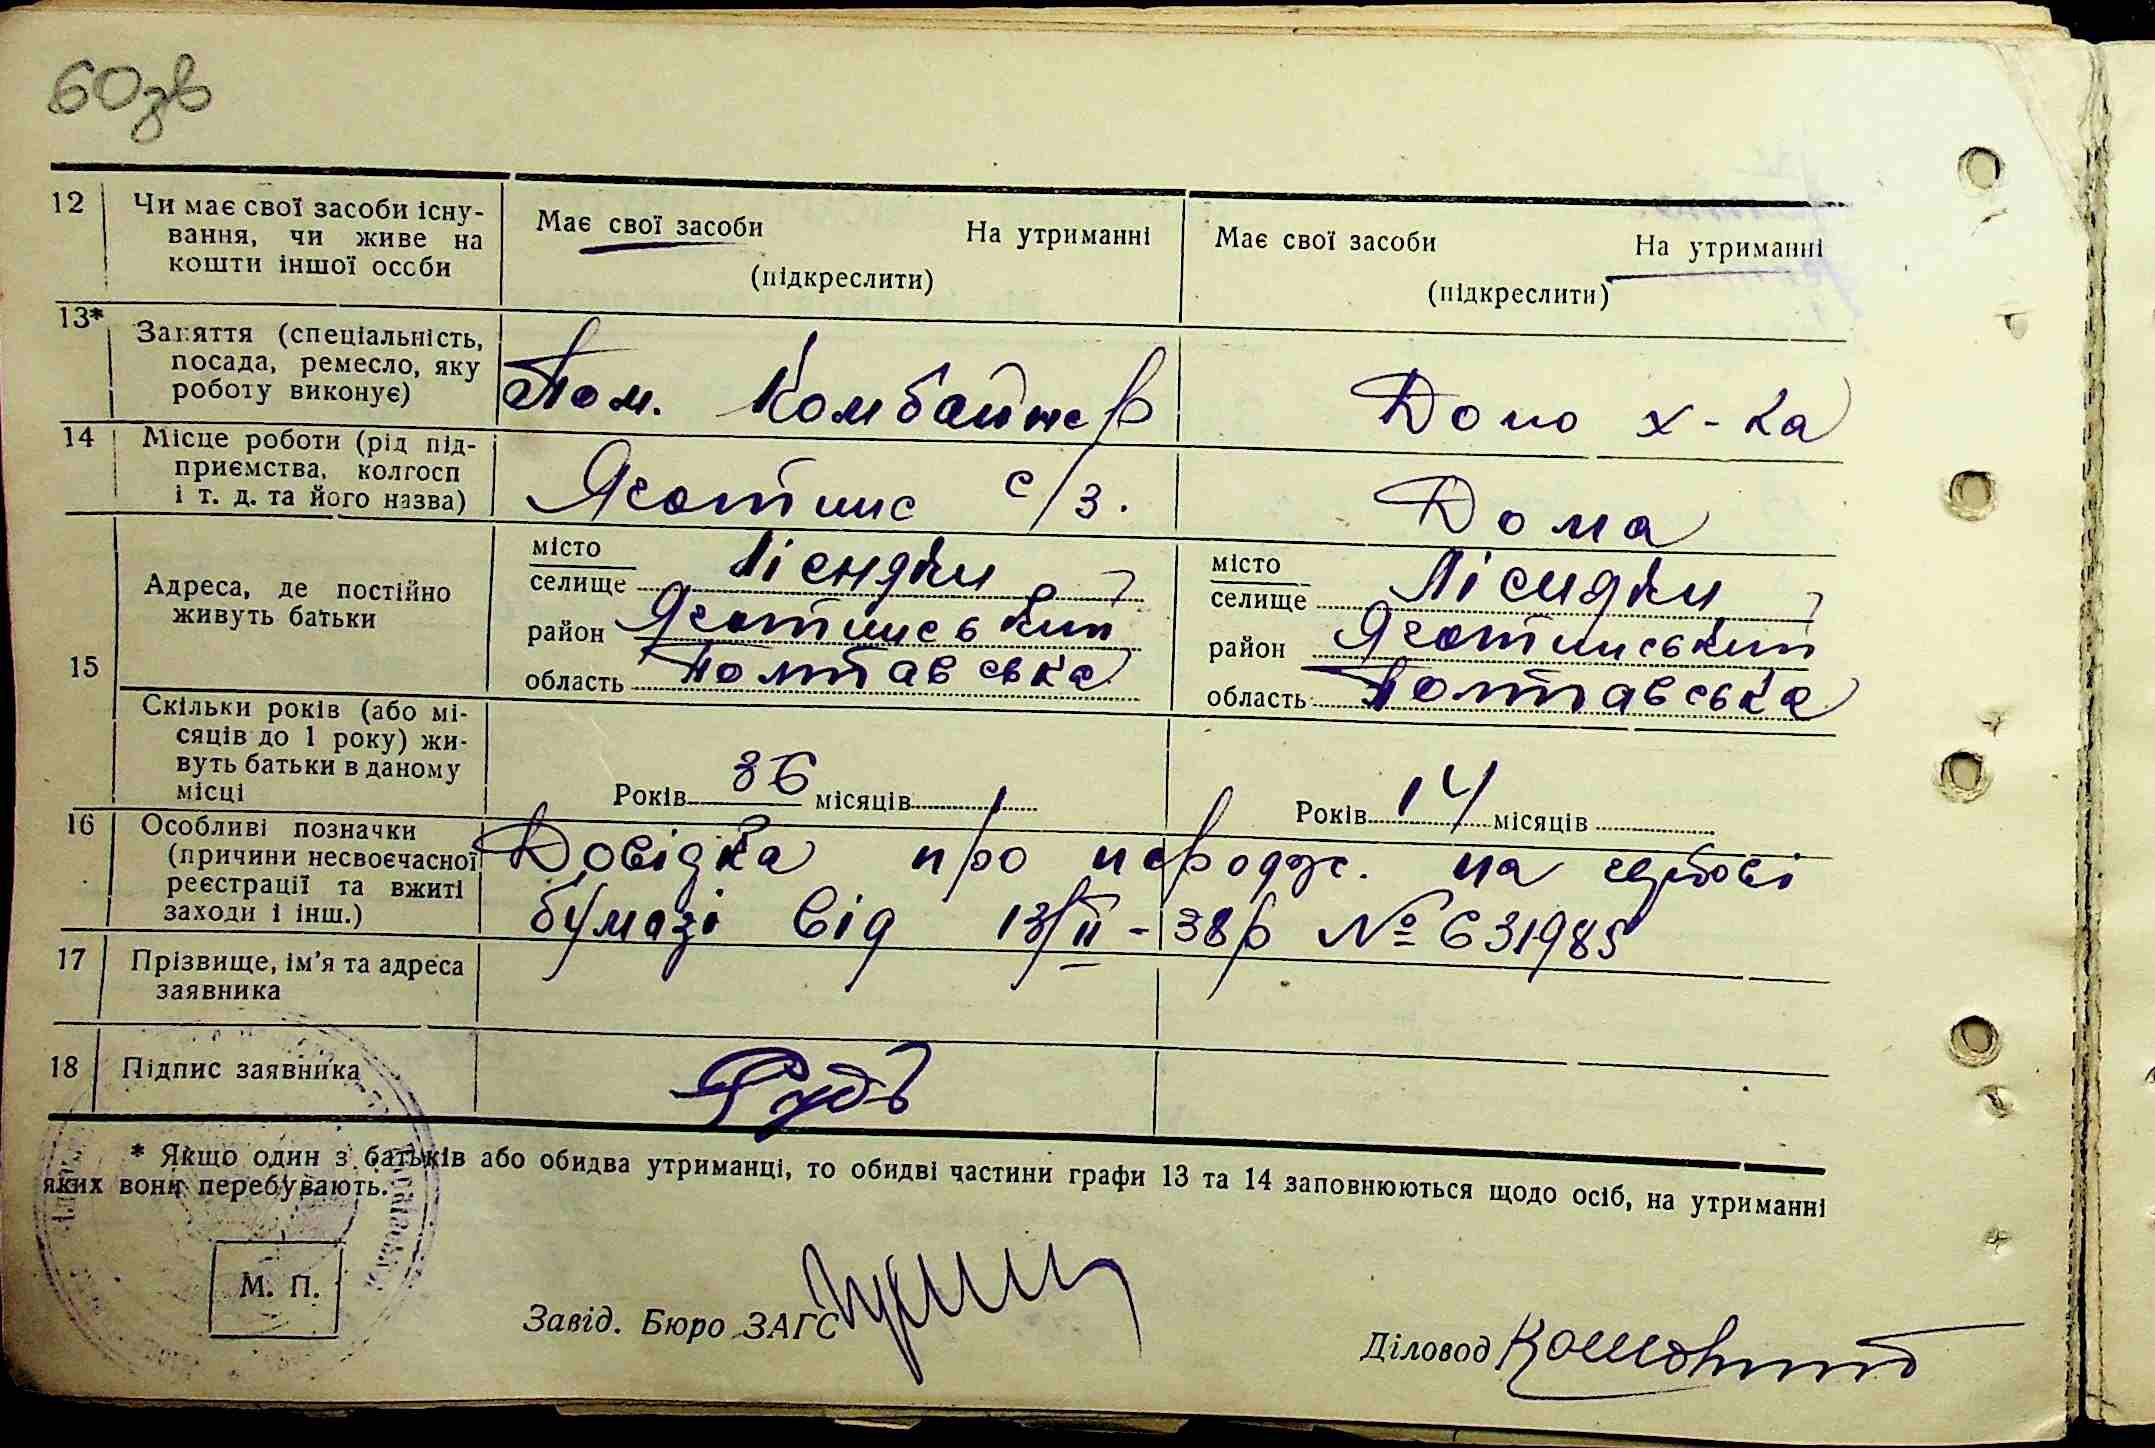 60зв
12 Чи має свої засоби існу-
вання, чи живе на
кошти іншої особи
Має свої засоби На утриманні
(підкреслити)
Має свої засоби На утриманні
(підкреслити)
13* Заняття (спеціальність,
посада, ремесло, яку
роботу виконує)
Пом. Комбайнер
Домо х-ка
14 Місце роботи (рід під-
приємства, колгосп
і т. д. та його назва)
Яготинс с/з.
Дома
15 Адреса, де постійно
живуть батьки
місто
селище Лісняки
район Яготинський
область Полтавська
місто
селище Лісняки
район Яготинський
область Полтавська
Скільки років (або мі-
сяців до 1 року) жи-
вуть батьки в даному
місці
Років 36 місяців
Років 14 місяців
16 Особливі позначки
(причини несвоєчасної
реєстрації та вжиті
заходи і інш.)
Довідка про народж. на гербові
бумазі від 13/II-38р № 631985
17 Прізвище, ім'я та адреса
заявника
18 Підпис заявника
Рудь
* Якщо один з батьків або обидва утриманці, то обидві частини графи 13 та 14 заповнюються щодо осіб, на утриманні
яких вони перебувають.
М. П.
Завід. Бюро ЗАГС
Діловод